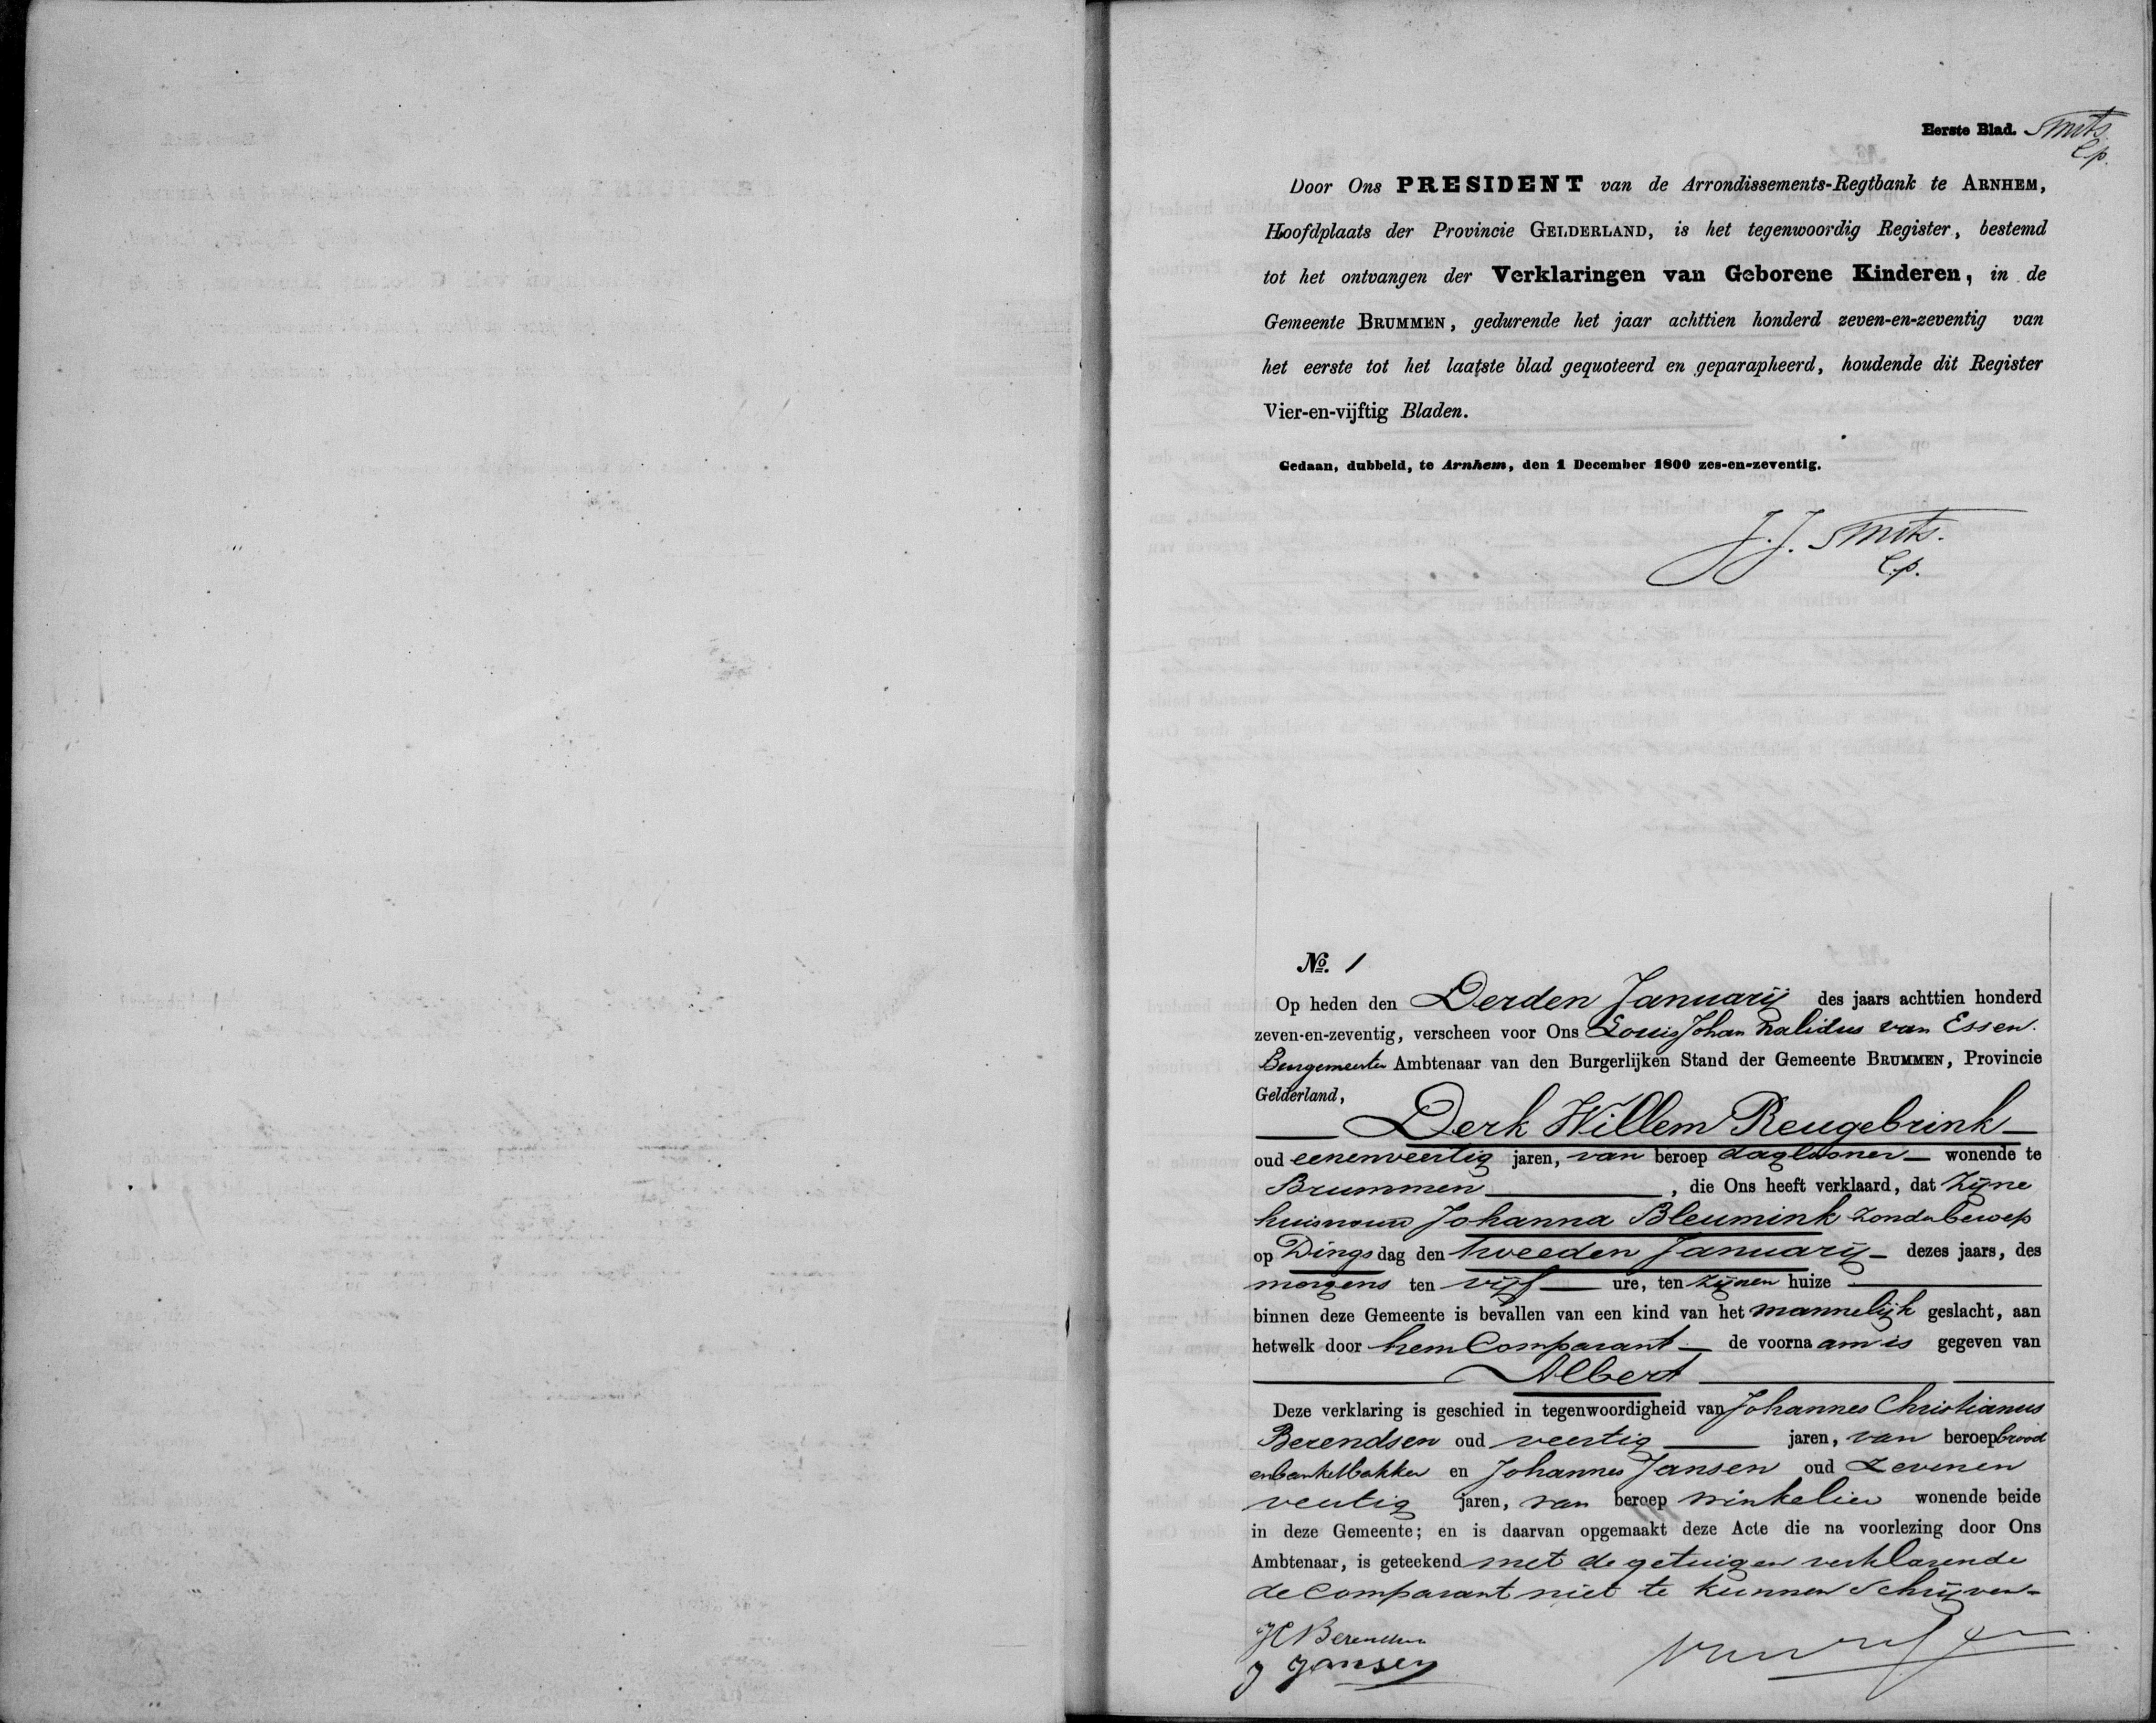 Eerste Blad. Smits
l.p.
Door Ons PRESIDENT van de Arrondissements-Regtbank te ARNHEM,
Hoofdplaats der Provincie GELDERLAND, is het tegenwoordig Register, bestemd
tot het ontvangen der Verklaringen van Geborene Kinderen, in de
Gemeente BRUMMEN, gedurende het jaar achttien honderd zeven-en-zeventig van
het eerste tot het laatste blad gequoteerd en geparapheerd, houdende dit Register
Vier-en-vijftig Bladen.
Gedaan, dubbeld, te Arnhem, den 1 December 1800 zes-en-zeventig.
J. J. Smits.
l.p.
No. 1
Op heden den Derden Januarij des jaars achttien honderd
zeven-en-zeventig, verscheen voor Ons Louis Johan Nalidus van Essen.
Burgemeester Ambtenaar van den Burgerlijken Stand der Gemeente BRUMMEN, Provincie
Gelderland,
Derk Willem Reugebrink
oud eenenveertig jaren, van beroep daglooner wonende te
Brummen, die Ons heeft verklaard, dat Zijne
huisvrouw Johanna Bleumink zonder beroep
op Dingsdag den tweeden Januarij dezes jaars, des
morgens ten vijf ure, ten zijnen huize
binnen deze Gemeente is bevallen van een kind van het mannelijk geslacht, aan
hetwelk door hem Comparant de voornaam is gegeven van
Albert
Deze verklaring is geschied in tegenwoordigheid van Johannes Christianus
Berendsen oud veertig jaren, van beroep brood
en banketbakker en Johannes Jansen oud Zevenen
veertig jaren, van beroep winkelier wonende beide
in deze Gemeente; en is daarvan opgemaakt deze Acte die na voorlezing door Ons
Ambtenaar, is geteekend met de getuigen verklarende
de Comparant niet te kunnen Schrijven
JC Berendsen
J Jansen